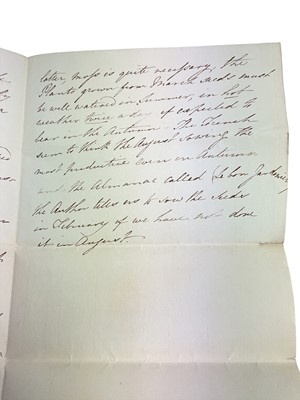 later, moss is quite necessary, the
Plants grown from March seeds must
be well watered in Summer, in hot
weather twice a day if expected to
bear in the Autumn. The French
seem to think the August sowing the
most productive even in Autumn
and the Almanac called Le bon Jardinier,
the Author tells us to sow the Seeds
in February if we have not done
it in August